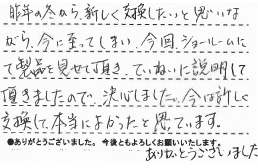 昨年の冬から、新しく交換したいと思いな
がら、今に至ってしまい、今回、ショールームに
て製品を見せて頂き、ていねいに説明して
頂きましたので、決心しました。今は新しく
交換して、本当によかったと思っています。
●ありがとうございました。今後ともよろしくお願いいたします。
ありがとうございました